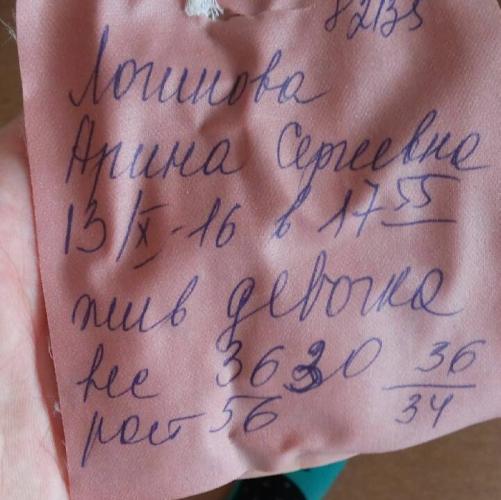 82135
Логинова
Арина Сергеевна
13/X-16 в 17 55
жив девочка
вес 3630 36
рост 56 34